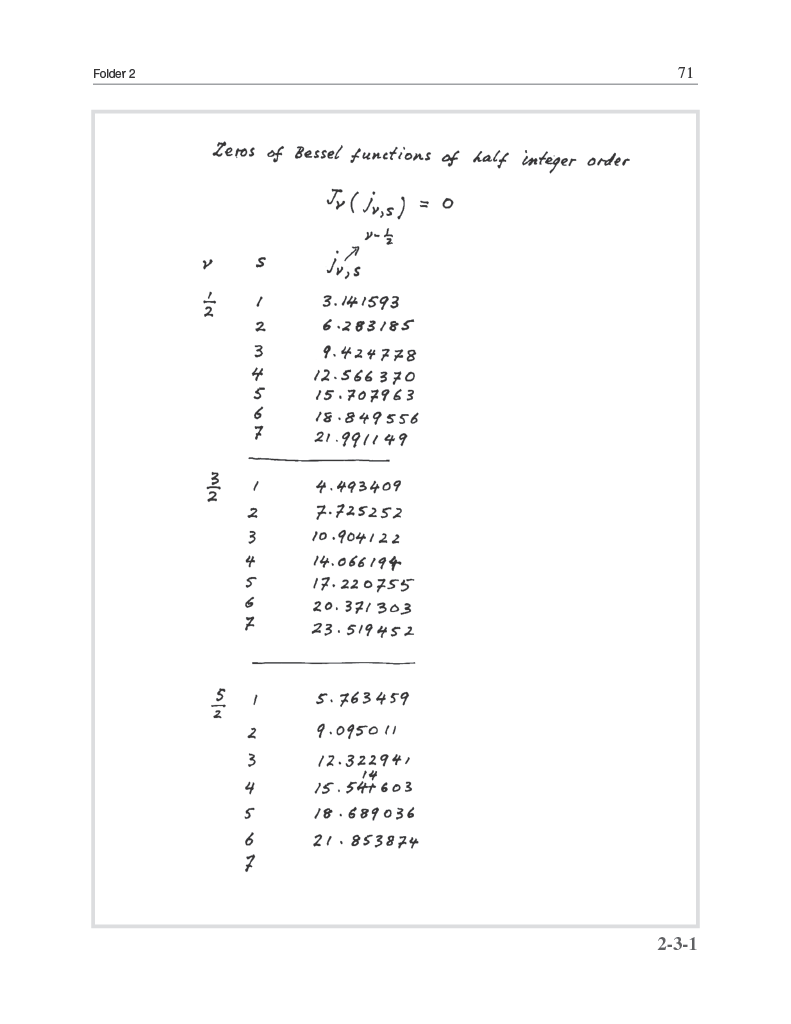 Folder 2 71
Zeros of Bessel functions of half integer order
Jν(jν,s) = 0
ν-1/2
ν s jν,s
1/2 1 3.141593
2 6.283185
3 9.424778
4 12.566370
5 15.707963
6 18.849556
7 21.991149
3/2 1 4.493409
2 7.725252
3 10.904122
4 14.066194
5 17.220755
6 20.371303
7 23.519452
5/2 1 5.763459
2 9.095011
3 12.322941
14
4 15.541603
5 18.689036
6 21.853874
7
2-3-1